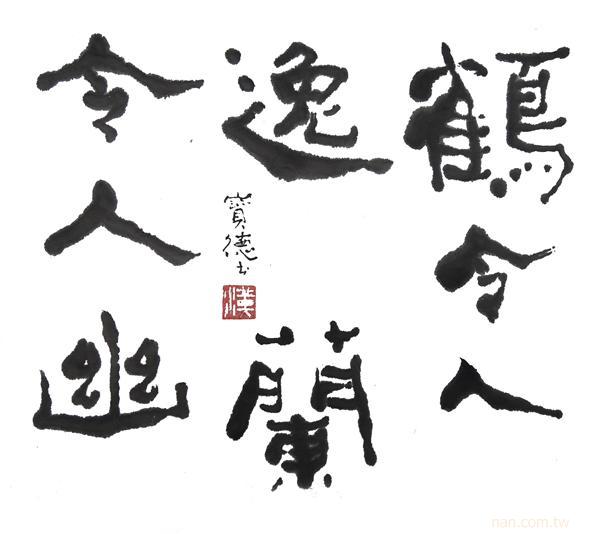 鶴令人
逸蘭
令人幽
寶德书
漢
nan.com.tw